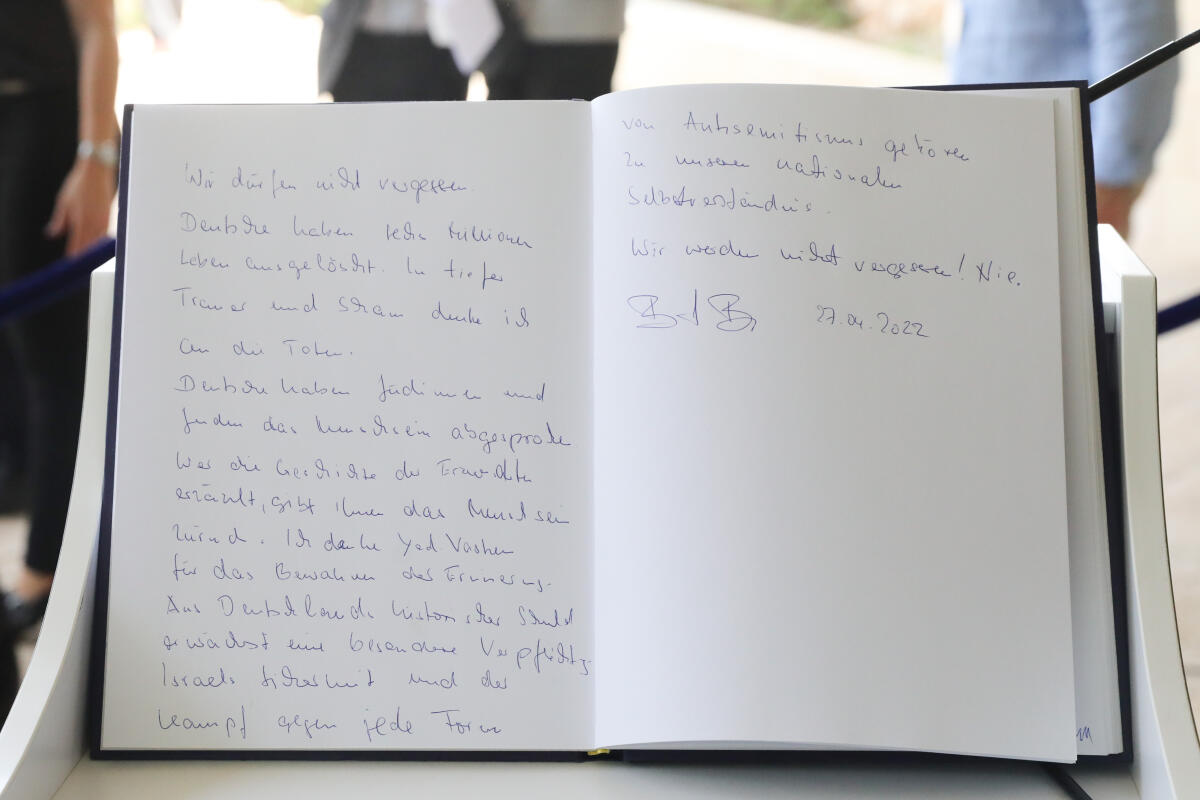 Wir dürfen nicht vergessen.
Deutsche haben sechs Millionen
Leben ausgelöscht. In tiefer
Trauer und Scham denke ich
an die Toten.
Deutsche haben Jüdinnen und
Juden das Menschsein abgesprochen
Wer die Geschichte der Ermordeten
erzählt, gibt Ihnen das Menschsein
zurück. Ich danke Yad Vashem
für das Bewahren der Erinnerung.
Aus Deutschlands historischer Schuld
erwächst eine besondere Verpflichtung
Israels Sicherheit und der
Kampf gegen jede Form
von Antisemitismus gehören
zu unserem nationalen
Selbstverständnis.
Wir werden nicht vergessen! Nie.
27.04.2022